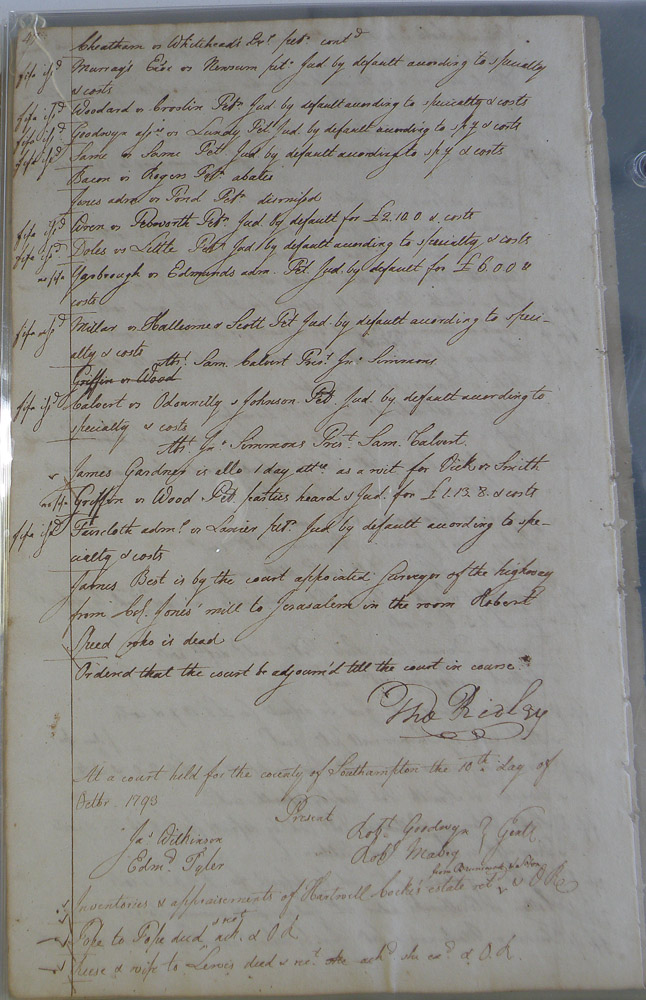 Cheatham vs Whitehead's Exr. petn. contd
fifa issd Murray's Exor vs Newsum petn. Jud. by default according to specialty
& costs
fifa issd Woodard vs Croslin Petn. Jud by default according to specialty & costs
fifa issd Goodwyn assee vs Lundy Petn. Jud. by default according to sp.y & costs
fifa issd Same vs Same Petn Jud. by default according to sp.y & costs
Bacon vs Rogers Petn. abates
Jones admr vs Pond Petn. dismissed
fifa issd vs Petn. Jud. by default for £2.10.0 & costs
fifa issd Doles vs Little Petn. Jud. by default according to specialty & costs
no fifa Yarbrough vs Edmunds adm. Pet. Jud. by default for £6.0.0 &
costs
fifa issd Millar vs & Scott Pet Jud. by default according to speci-
alty & costs
Abst. Sam. Calvert Prest. Jno. Simmons
Griffin vs Wood
fifa issd Calvert vs Odonnelly & Johnson Pet. Jud. by default according to
specialty & costs
Abst. Jno. Simmons Prest. Sam. Calvert.
James Gardner is allo 1 day attce. as a wit for Vick vs Smith
no fifa Griffin vs Wood Pet. parties heard & Jud. for £1.13.8. & costs
fifa issd Faircloth admr. vs Lanier petn. Jud by default according to spe-
cialty & costs
James Best is by the court appointed Surveyor of the highway
from Col. Jones' mill to Jerusalem in the room Robert
Speed who is dead
Ordered that the court be adjourn'd till the court in course.
Tho Ridley
At a court held for the county of Southampton the 10th day of
Octbr. 1793
Present
Jas. Wilkinson Robt. Goodwyn } Gent.
Edmd. Tyler Robt. Mabry
from Brunswick
Inventories & appraisements of Hartwell Cocke's estate ret & O R
Pope to Pope deed & not ack. & O R
Reese & wife to Lewis deed & not. ackd. she exd. & O. R.